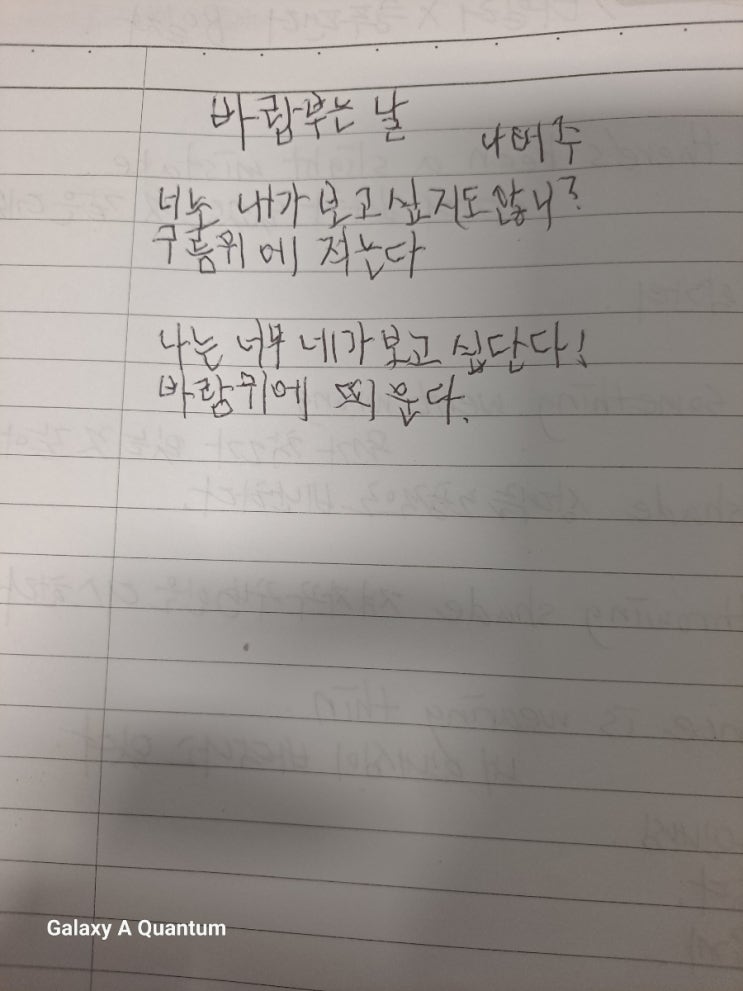 바람부는 날
나태주
너는 내가 보고싶지도 않니?
구름위에 적는다
나는 너무 네가 보고 싶단다!
바람위에 띄운다.
Galaxy A Quantum